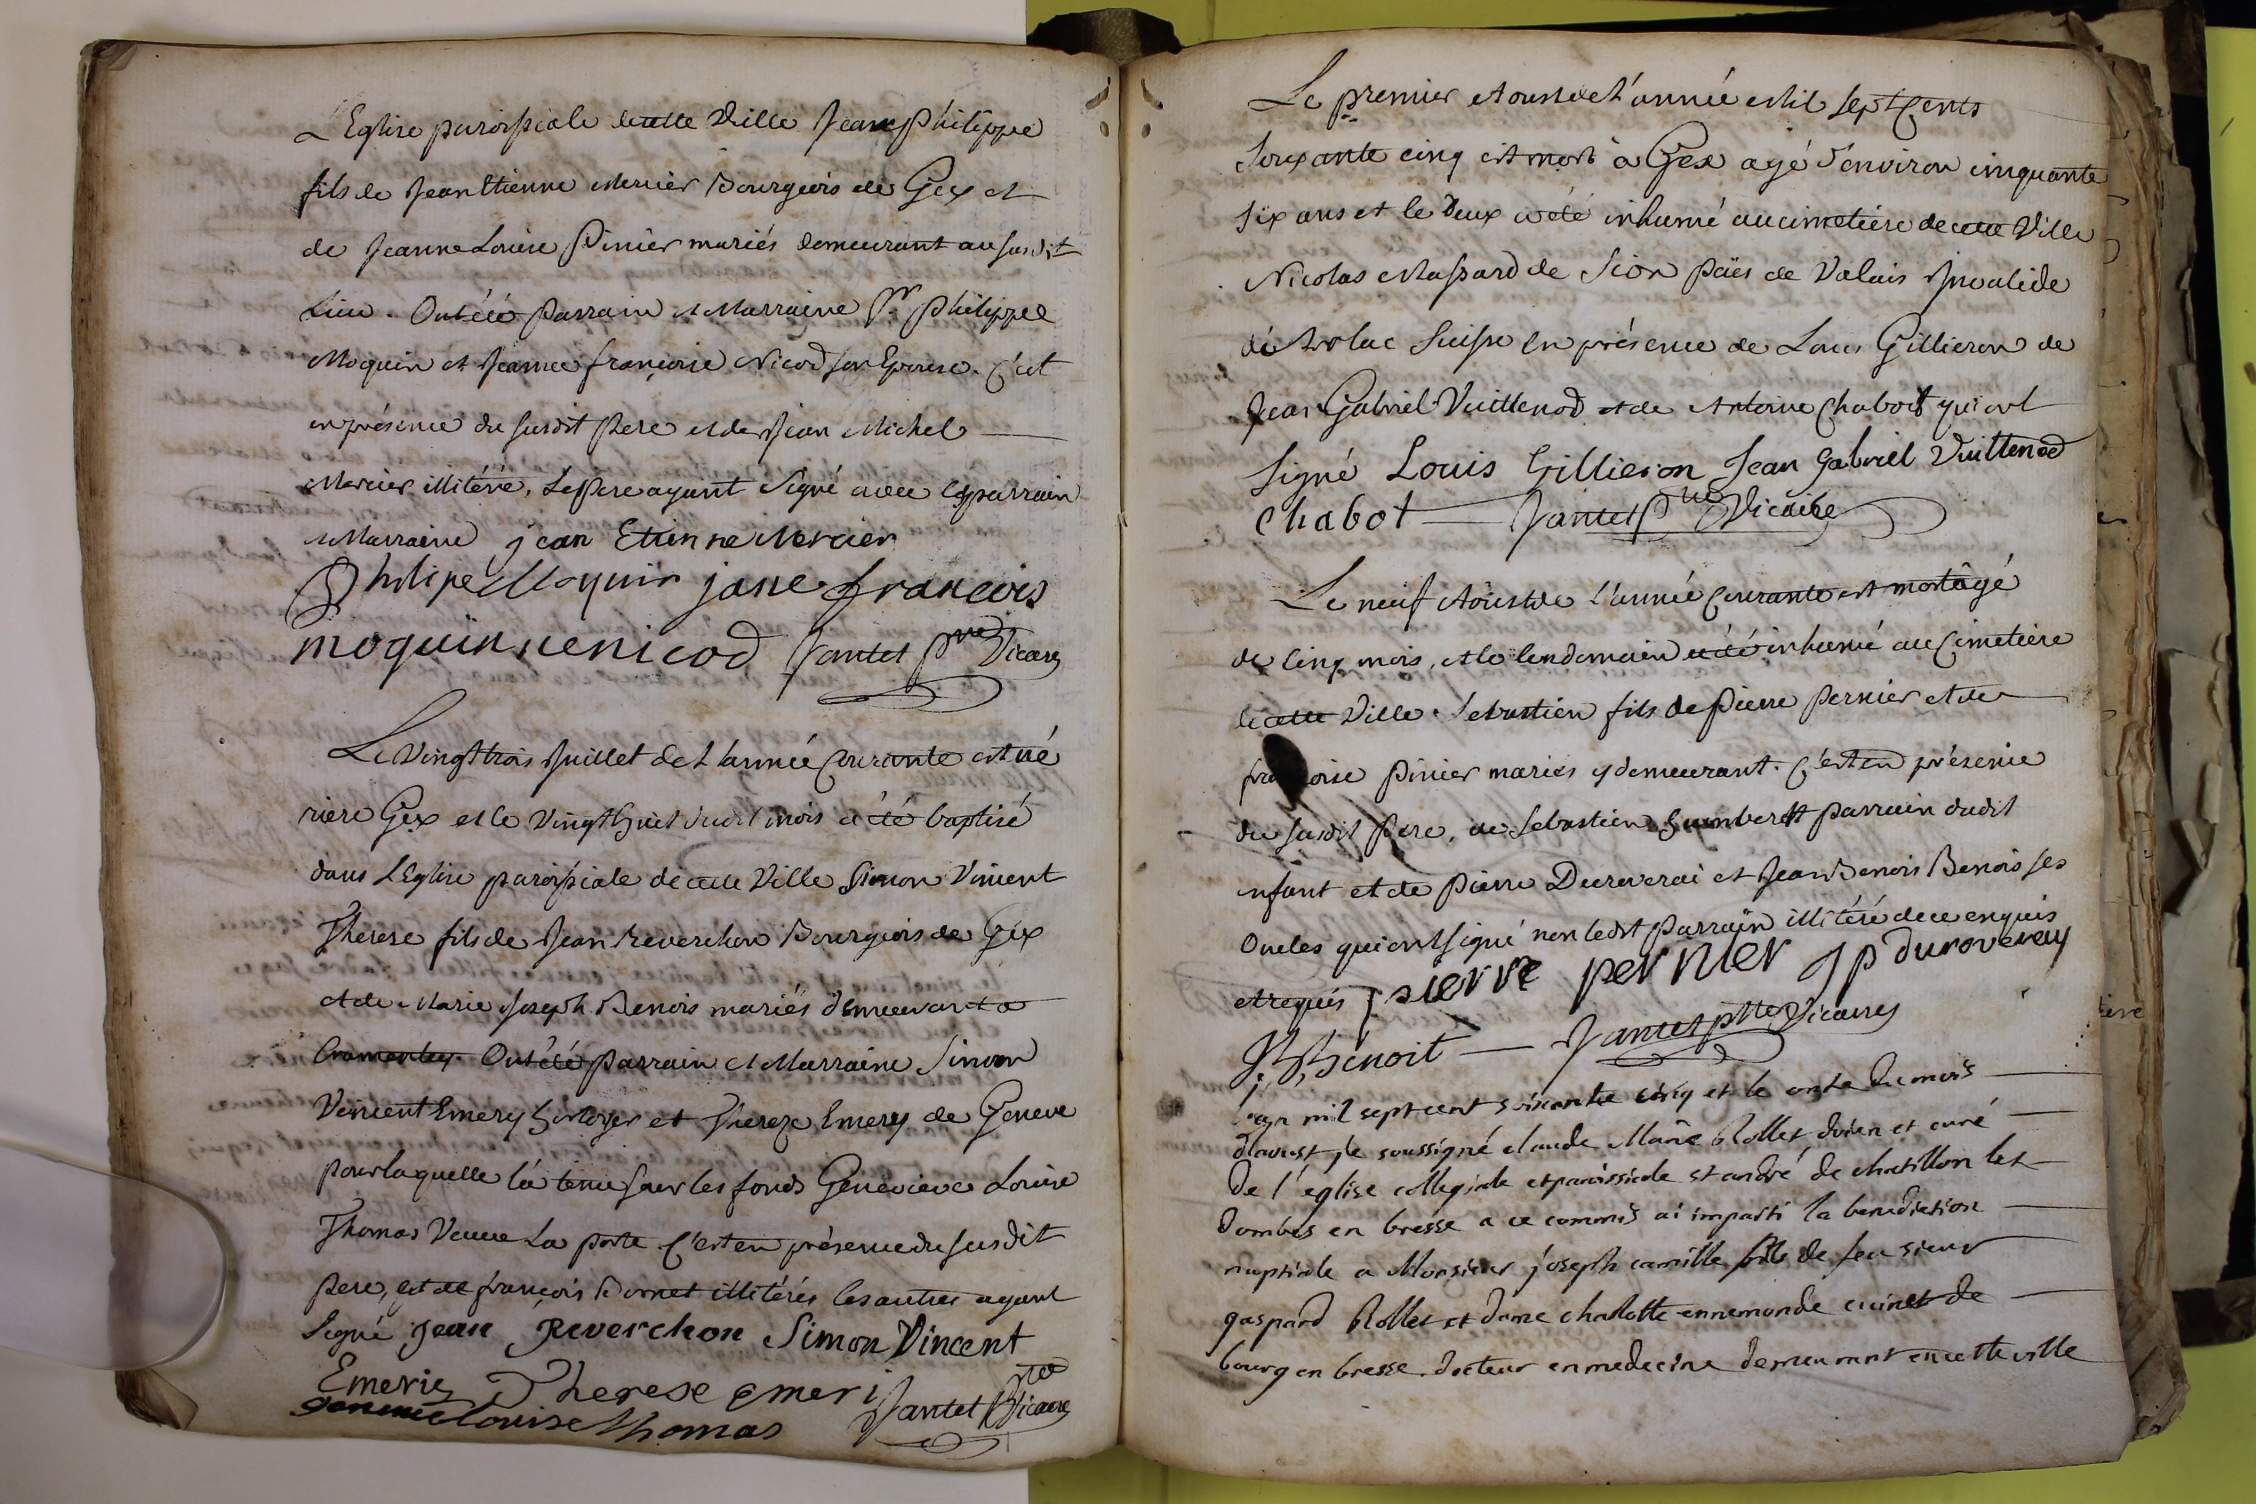 L'Eglise paroissiale de cette Ville Jean Philippe
fils de Jean Etienne Mercier Bourgeois de Gex et
de Jeanne Louise Pinier mariés demeurant au susdit
Lieu. Ont été parrain et Marraine Sr. Philippe
Moquin et Jeanne françoise Nicod son Epouse. C'est
en présence du susdit Pere et de Jean Michel
Mercier illitéré, Le Pere ayant signé avec le parrain
et Marraine jean Etienne Mercier
Philipe Moquin jane francois
moquin nenicod Jantet Ptre Vicaire
Le Vingt trois Juillet de L'année Courante est né
riere Gex et le vingt huit dudit mois a été baptisé
dans L'Eglise paroissiale de cette Ville Simon Vincent
Therese fils de Jean Reverchon Bourgeois de Gex
et de Marie Joseph Benois mariés demeurant a
Ont été parrain et Marraine Simon
Vincent Emery horloger et Thereze Emery de Geneve
pour laquelle l'a tenu sur les fonds Genevieve Louise
Thomas Veuve La porte. C'est en présence du susdit
pere, et de françois Bornet illitérés les autres ayant
signé jean Reverchon Simon Vincent
Emerie Therese emeri Jantet Ptre Vicaire
genevie louise thomas
Le premier Aoust de L'année Mil sept Cents
soixante cinq est mort à Gex agé d'environ cinquante
six ans et le Deux a été inhumé au cimetière de cette Ville
Nicolas Massard de Sion païs de Valais Invalide
de suisse en présence de Louis Gillieron de
Jean Gabriel Vuillenod et de Antoine Chabot qui ont
signé Louis Gillieron Jean Gabriel Vuillenod
Chabot Jantet Ptre Vicaire
Le neuf Aoust de L'année Courante est mort âgé
de Cinq mois, et le lendemain a été inhumé au Cimetière
de cette Ville. Sebastien fils de Pierre Pernier et de
françoise Pinier mariés y demeurant. C'est en présence
du susdit Pere, de Sebastien humbert parrain dudit
enfant et de Pierre Duroverai et Jean Benois Benois ses
Oncles qui ont signé non ledit Parrain illitéré de ce enquis
et requis pierre pernier J p duroverey
J B Benoit Jantet ptre Vicaire
L'an mil sept cent soixante cinq et le onze du mois
d'aoust je soussigné claude Marie Rollet doïen et curé
de l'eglise collegiale et paroissiale st andré de chatillon les
dombes en bresse a ce commis ai imparti la benediction
nuptiale a Monsieur joseph camille fils de feu sieur
gaspard Rollet et dame charlotte ennemonde de
bourg en bresse docteur en medecine demeurant en cette ville